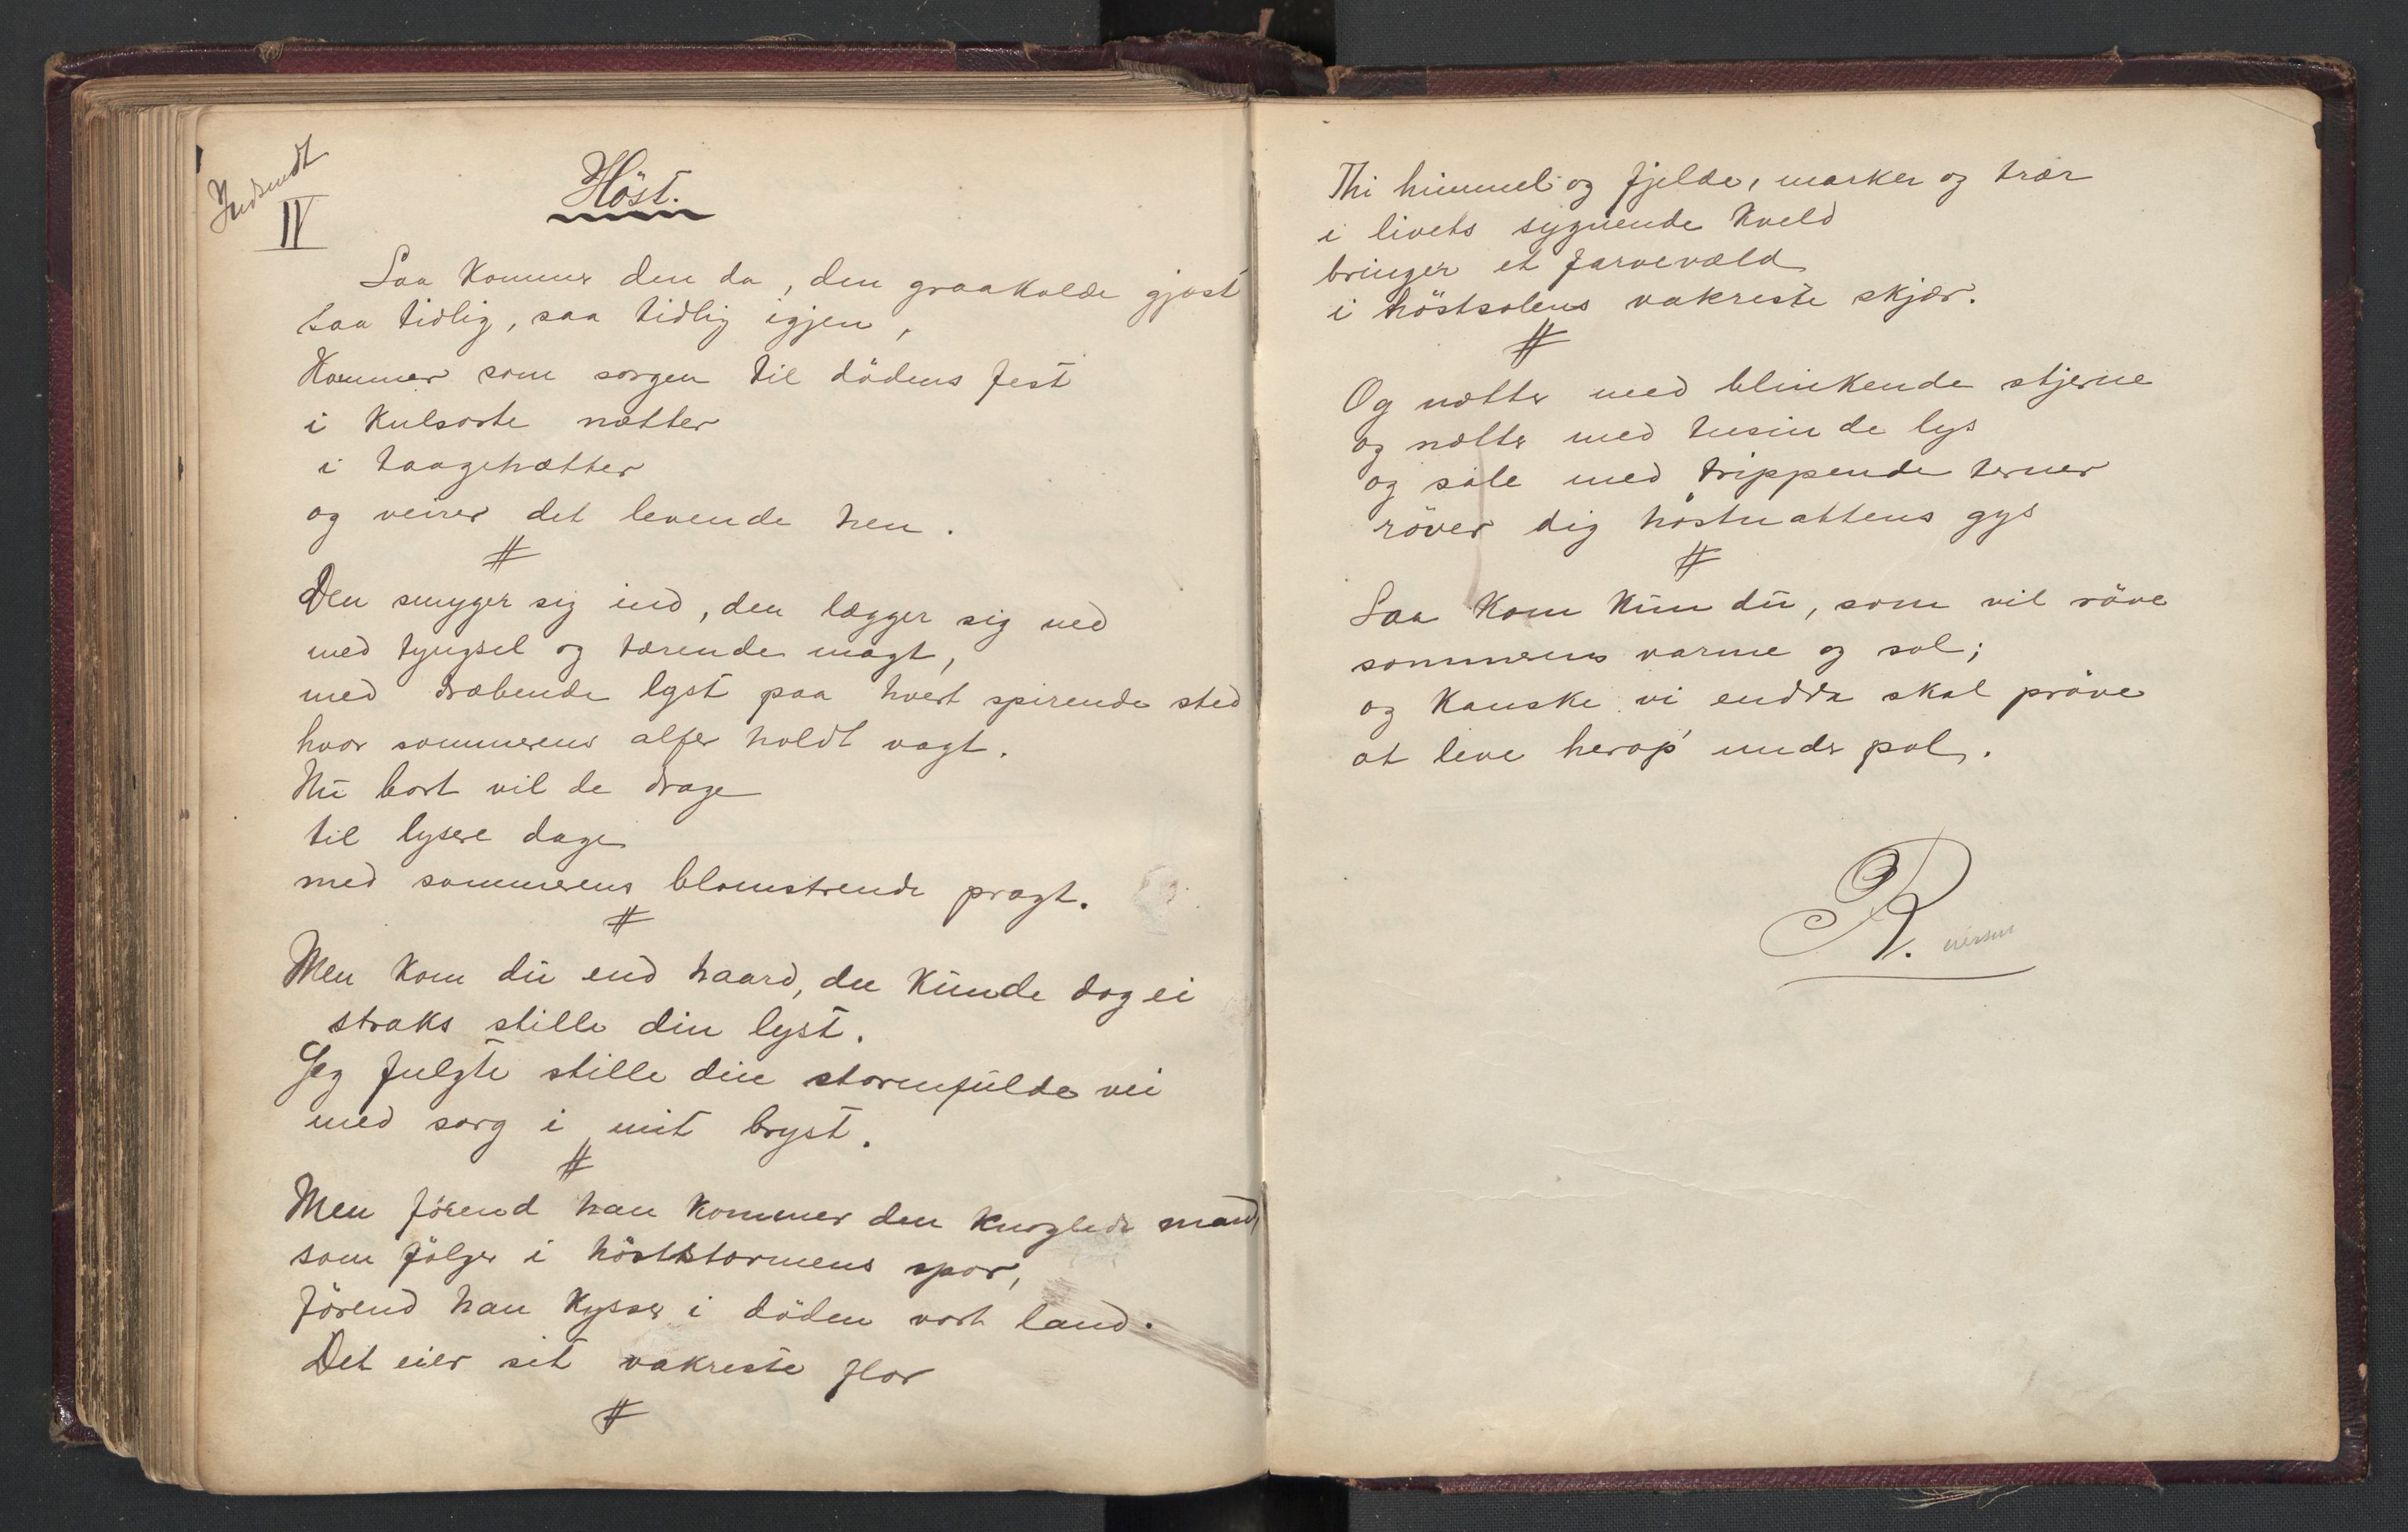 Indsendt
IV
Höst.
Saa kommer den da, den graakolde gjæst
saa tidlig, saa tidlig igjen,
Kommer som sorgen til dödens fest
i kulsorte nætter
i taagehætter
og veirer det levende hen.
#
Den smyger sig ind, den lægger sig ned
med tyngsel og tærende magt,
med dræbende lyst paa hvert spirende sted
hvor sommerens alfer holdt vagt.
Nu bort vil de drage
til lysere dage
med sommerens blomstrende pragt.
#
Men kom du end haard, du kunde dog ei
straks stille din lyst.
Jeg fulgte stille din stormfulde vei
med sorg i mit bryst.
#
Men förend han kommer den knoglede mand,
som fölger i höststormens spor,
förend han kysser i döden vort land.
Det eier sit vakreste flor
#
Thi himmel og fjelde, marker og trær
i livets sygnende kveld
bringer et farvevæld
i höstsolens vakreste skjær.
#
Og nætter med blinkende stjerne
og nætter med tusinde lys
og sale med trippende terner
röver dig höstnattens gys
#
Saa kom kun du, som vil röve
sommerens varme og sol;
og kanske vi endda skal pröve
at leve herop under pol.
R.